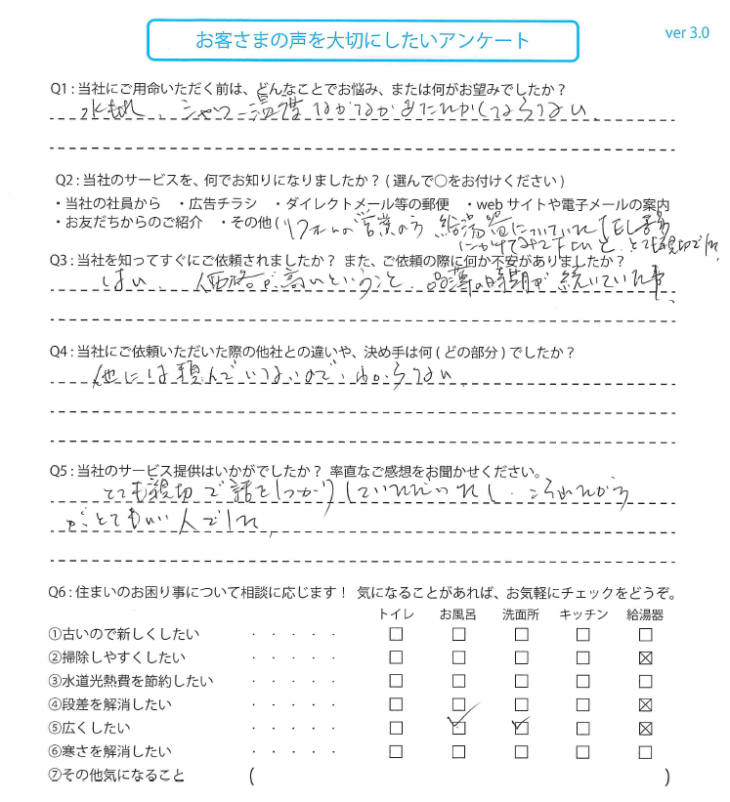 お客さまの声を大切にしたいアンケート
ver 3.0
Q1 : 当社にご用命いただく前は、どんなことでお悩み、または何がお望みでしたか?
水もれ、シャワー温度なかなかあたたかくならない。
Q2 : 当社のサービスを、何でお知りになりましたか? ( 選んで○をお付けください )
・当社の社員から ・広告チラシ ・ダイレクトメール等の郵便 ・web サイトや電子メールの案内
・お友だちからのご紹介 ・その他 ( リフォームの営業の方 給湯器についていたTEL番号
にかけてみて下さいと、とても親切でした。
Q3 : 当社を知ってすぐにご依頼されましたか? また、ご依頼の際に何か不安がありましたか?
はい、価格が高いということ、品薄の時期が続いていた事、
Q4 : 当社にご依頼いただいた際の他社との違いや、決め手は何 ( どの部分 ) でしたか?
他には頼んでいないので、わからない。
Q5 : 当社のサービス提供はいかがでしたか? 率直なご感想をお聞かせください。
とても親切で話をしっかりして
がとてもいい人でした。
Q6 : 住まいのお困り事について相談に応じます! 気になることがあれば、お気軽にチェックをどうぞ。
トイレ お風呂 洗面所 キッチン 給湯器
①古いので新しくしたい ・・・・・ □ □ □ □ □
②掃除しやすくしたい ・・・・・ □ □ □ □ ☒
③水道光熱費を節約したい ・・・・・ □ □ □ □ □
④段差を解消したい ・・・・・ □ □ □ □ ☒
⑤広くしたい ・・・・・ □ ☑ ☑ □ ☒
⑥寒さを解消したい ・・・・・ □ □ □ □ □
⑦その他気になること ( )